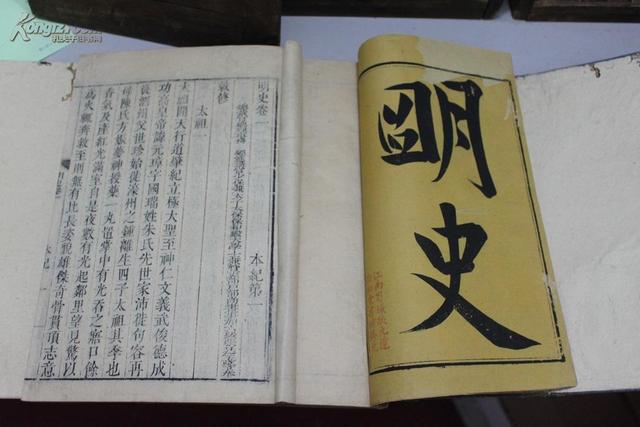 Kongfz.com
孔夫子旧书网
明史
明史卷一
本紀第一
敕修
太祖一
太祖開天行道肇紀立極大聖至神仁文義武俊德成
功高皇帝諱元璋字國瑞姓朱氏先世家沛徙句容再
徙泗州父世珍始徙濠州之鍾離生四子太祖其季也
母陳氏方娠夢神授藥一丸置掌中有光吞之寤口餘
香氣及產紅光滿室自是夜數有光起鄰里望見驚以
為火輒奔救至則無有比長姿貌雄傑奇骨貫頂志意
本紀